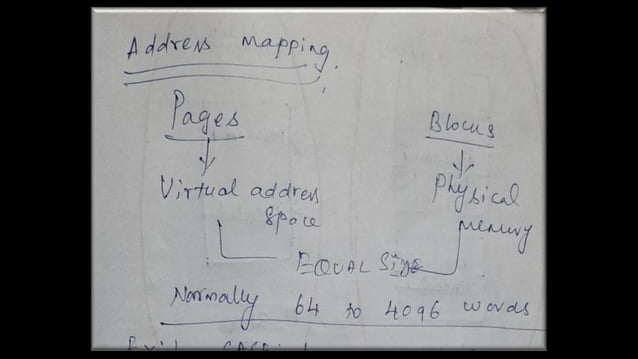 Address mapping.
Pages
Blocks
Virtual address
space
Physical
memory
EQUAL Size
Normally 64 to 4096 words